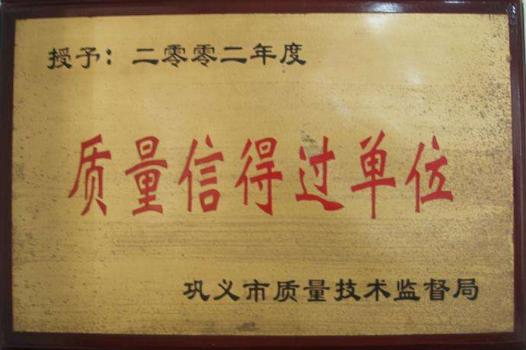 授予：二零零二年度
质量信得过单位
巩义市质量技术监督局